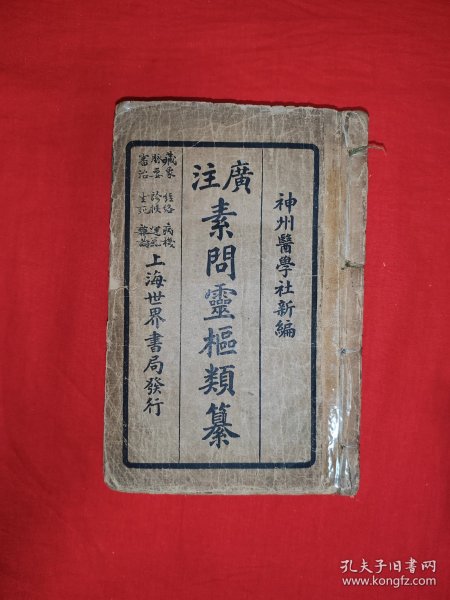 神州醫學社新編
廣注
素問靈樞類纂
藏象 經絡 病機
脈要 診候 運氣
審治 生死 雜論
上海世界書局發行
孔夫子旧书网
www.kongfz.com